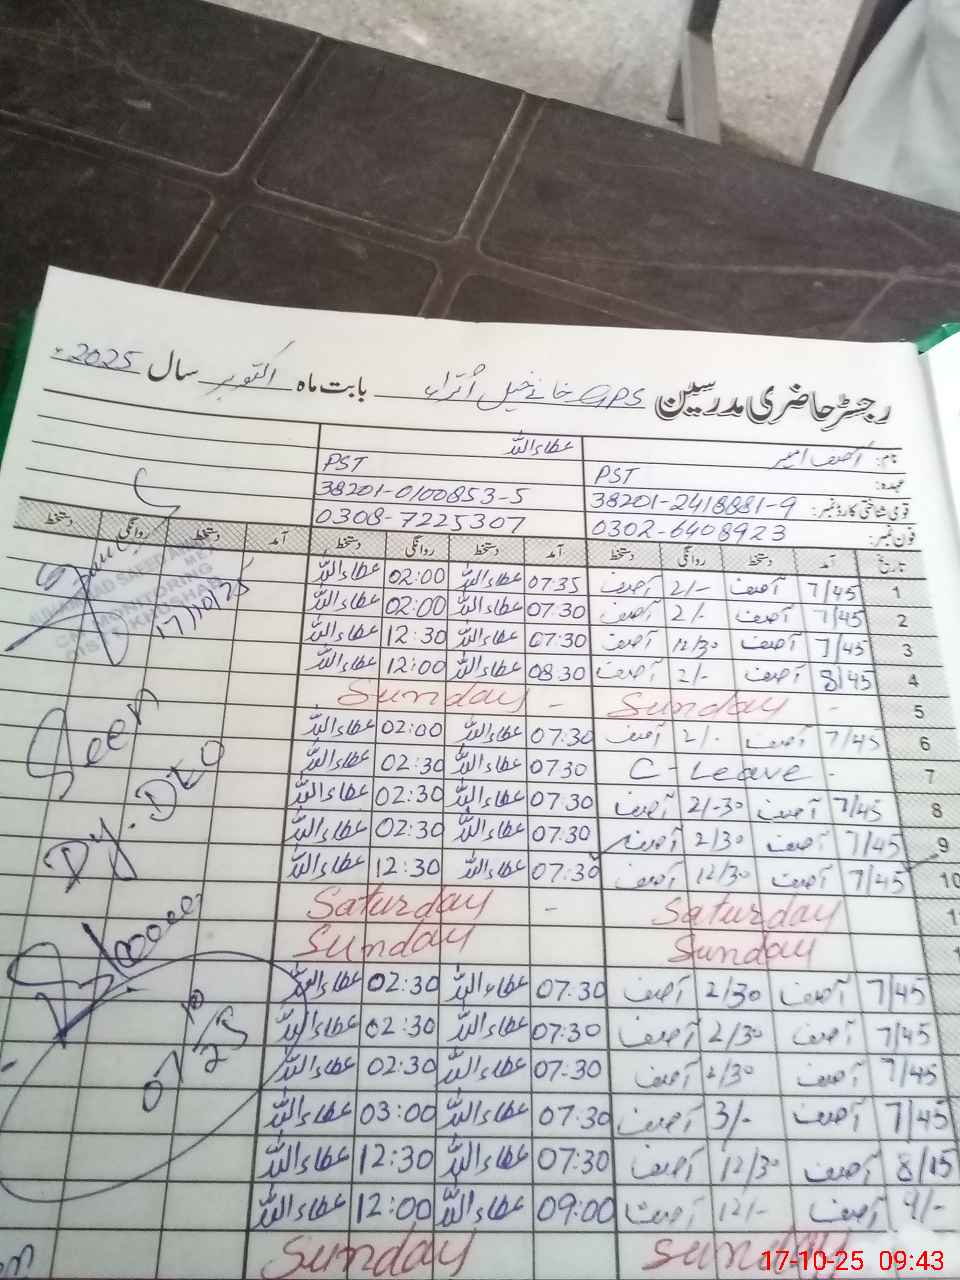 رجسٹر حاضری مدرسین GPS خانے خیل اُتراء بابت ماہ اکتوبر سال 2025ء
نام: آصف امیر عطاء اللہ
عہدہ: PST PST
قومی شناختی کارڈ نمبر: 38201-2418881-9 38201-0100853-5
فون نمبر: 0302-6408923 0308-7225307
تاریخ آمد دستخط روانگی دستخط آمد دستخط روانگی دستخط آمد دستخط روانگی دستخط
1 7/45 آصف 2/- آصف 07:35 عطاء اللہ 02:00 عطاء اللہ
2 7/45 آصف 2/- آصف 07:30 عطاء اللہ 02:00 عطاء اللہ
3 7/45 آصف 12/30 آصف 07:30 عطاء اللہ 12:30 عطاء اللہ
4 8/45 آصف 2/- آصف 08:30 عطاء اللہ 12:00 عطاء اللہ
5 - Sunday - Sunday
6 7/45 آصف 2/- آصف 07:30 عطاء اللہ 02:00 عطاء اللہ
7 - C-Leave 0730 عطاء اللہ 02:30 عطاء اللہ
8 7/45 آصف 2/-30 آصف 07:30 عطاء اللہ 02:30 عطاء اللہ
9 7/45 آصف 2/30 آصف 07:30 عطاء اللہ 02:30 عطاء اللہ
10 7/45 آصف 12/30 آصف 07:30 عطاء اللہ 12:30 عطاء اللہ
Saturday - Saturday
Sunday Sunday
7/45 آصف 2/30 آصف 07:30 عطاء اللہ 02:30 عطاء اللہ
7/45 آصف 2/30 آصف 07:30 عطاء اللہ 02:30 عطاء اللہ
7/45 آصف 2/30 آصف 07:30 عطاء اللہ 02:30 عطاء اللہ
7/45 آصف 3/- آصف 07:30 عطاء اللہ 03:00 عطاء اللہ
8/15 آصف 12/30 آصف 07:30 عطاء اللہ 12:30 عطاء اللہ
9/- آصف 12/- آصف 09:00 عطاء اللہ 12:00 عطاء اللہ
Sunday Sunday
MUHAMMAD SAEED
MONITORING
17/10/25
Seen
Dy. DEO
07/10/25
17-10-25 09:43